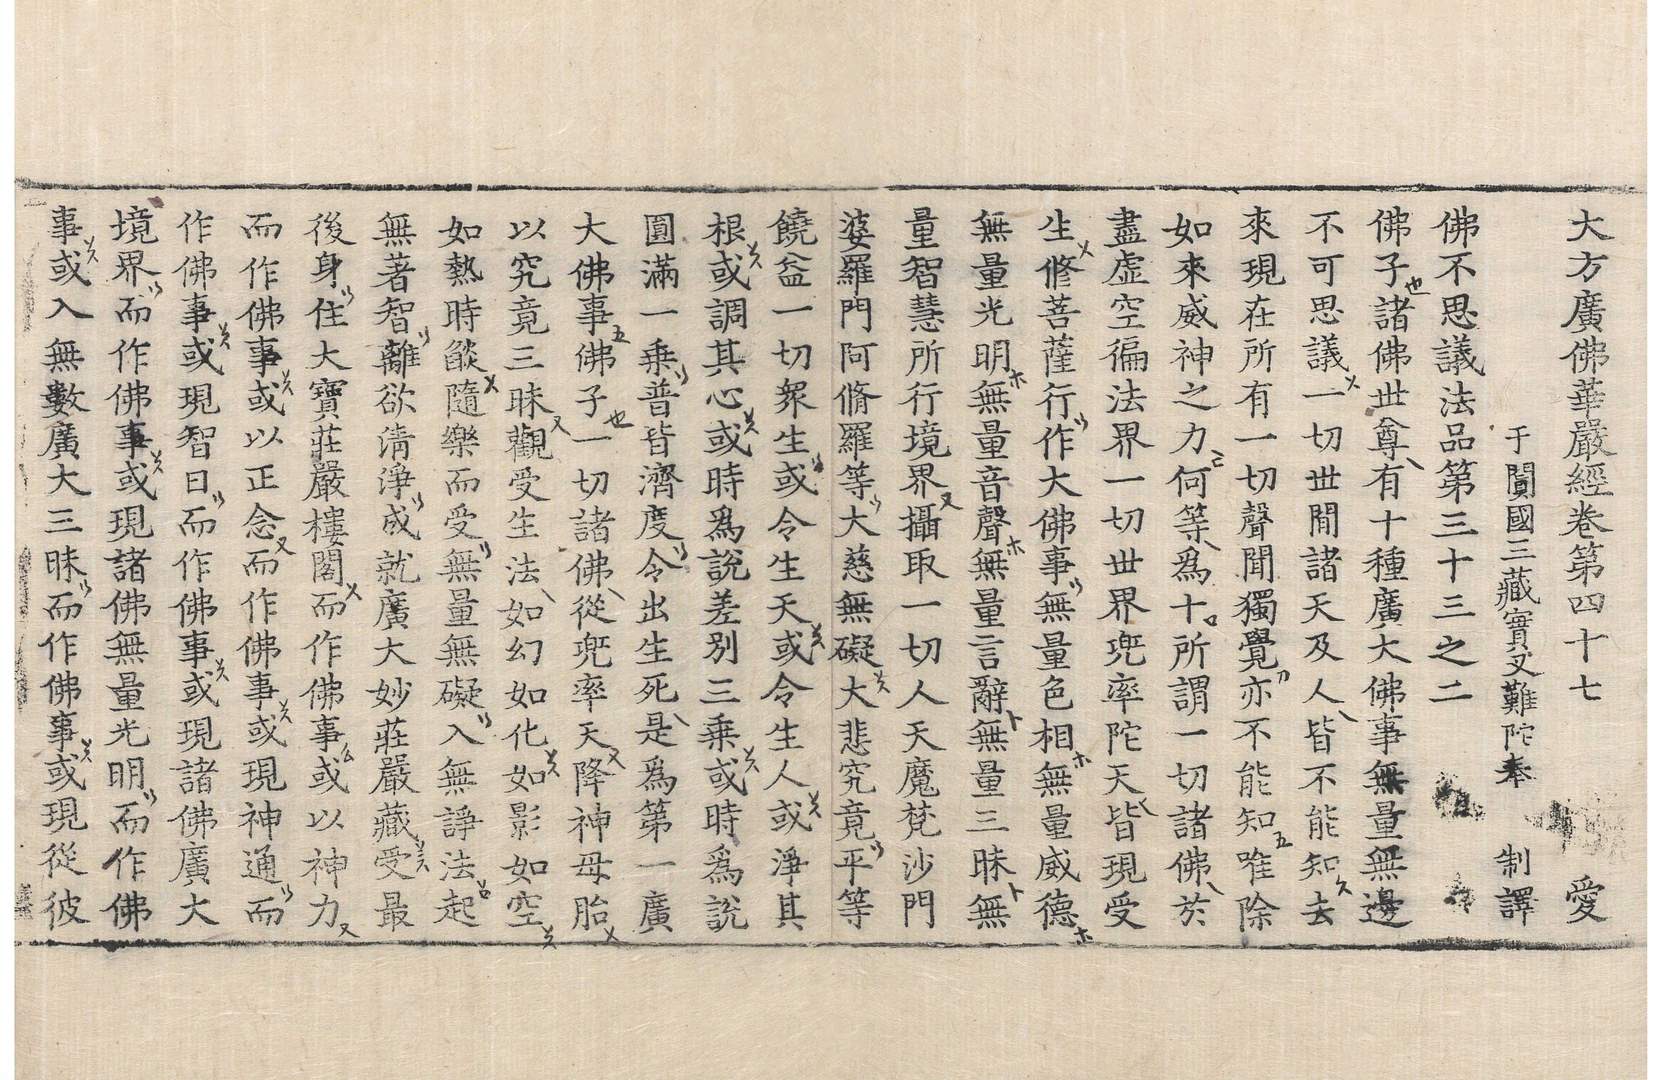 大方廣佛華嚴經卷第四十七 愛
于闐國三藏實叉難陀奉 制譯
佛不思議法品第三十三之二
佛子諸佛世尊有十種廣大佛事無量無邊
不可思議一切世閒諸天及人皆不能知去
來現在所有一切聲聞獨覺亦不能知唯除
如來威神之力何等為十所謂一切諸佛於
盡虛空徧法界一切世界兜率陀天皆現受
生修菩薩行作大佛事無量色相無量威德
無量光明無量音聲無量言辭無量三昧無
量智慧所行境界攝取一切人天魔梵沙門
婆羅門阿脩羅等大慈無礙大悲究竟平等
饒益一切眾生或令生天或令生人或淨其
根或調其心或時為說差別三乘或時為說
圓滿一乘普皆濟度令出生死是為第一廣
大佛事佛子一切諸佛從兜率天降神母胎
以究竟三昧觀受生法如幻如化如影如空
如熱時燄隨樂而受無量無礙入無諍法起
無著智離欲清淨成就廣大妙莊嚴藏受最
後身住大寶莊嚴樓閣而作佛事或以神力
而作佛事或以正念而作佛事或現神通而
作佛事或現智日而作佛事或現諸佛廣大
境界而作佛事或現諸佛無量光明而作佛
事或入無數廣大三昧而作佛事或現從彼